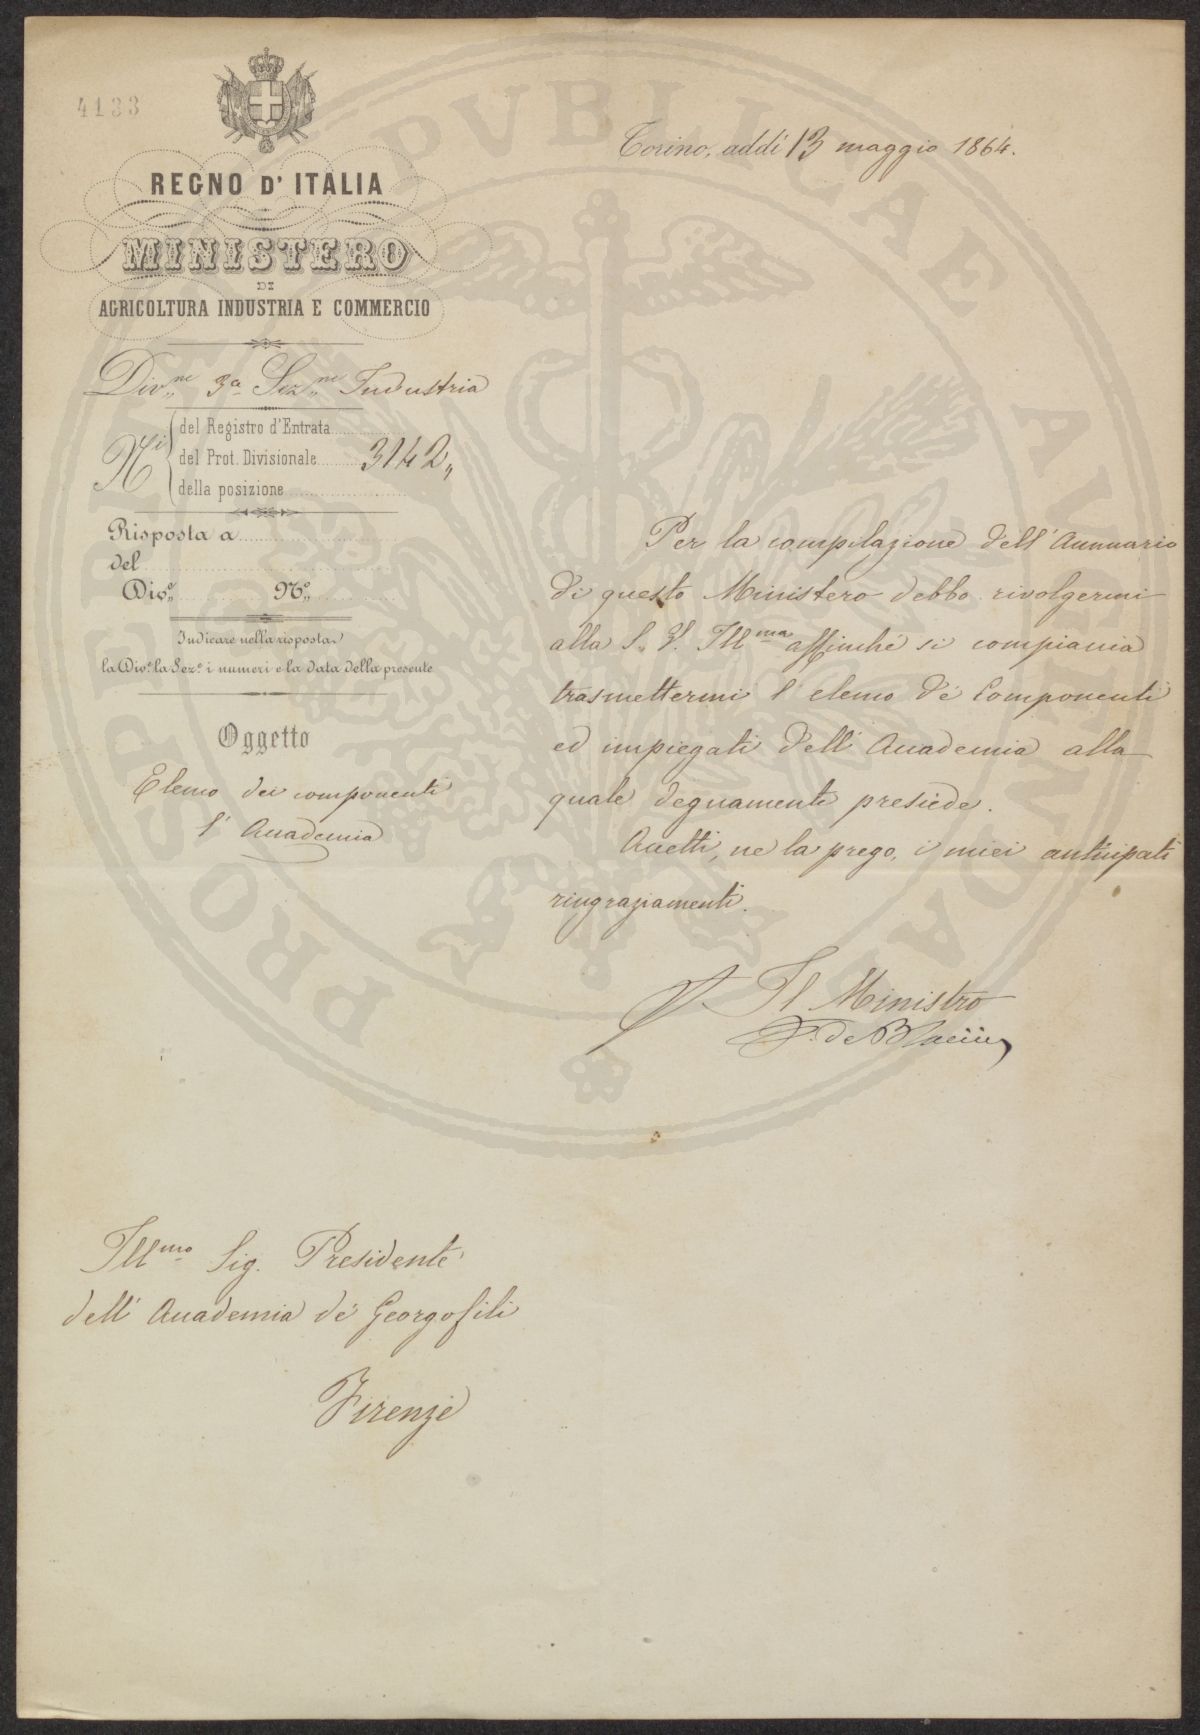 4133
REGNO D'ITALIA
MINISTERO
DI
AGRICOLTURA INDUSTRIA E COMMERCIO
Torino, addì 13 maggio 1864.
Div.ne 3a Sez.ne Industria
N.i
del Registro d'Entrata
del Prot. Divisionale 3142
della posizione
Risposta a
del
Div.e N.o
Indicare nella risposta
la Div.e la Sez.e i numeri e la data della presente
Oggetto
Elenco dei componenti
l'Accademia
Per la compilazione dell'Annuario
di questo Ministero debbo rivolgermi
alla S. V. Ill.ma affinché si compiaccia
trasmettermi l'elenco de' Componenti
ed impiegati dell'Accademia alla
quale degnamente presiede.
Accetti, ne la prego, i miei anticipati
ringraziamenti.
Il Ministro
Ill.mo Sig. Presidente
dell'Accademia de' Georgofili
Firenze
PROSPERITATI PVBLICAE AVGENDAE